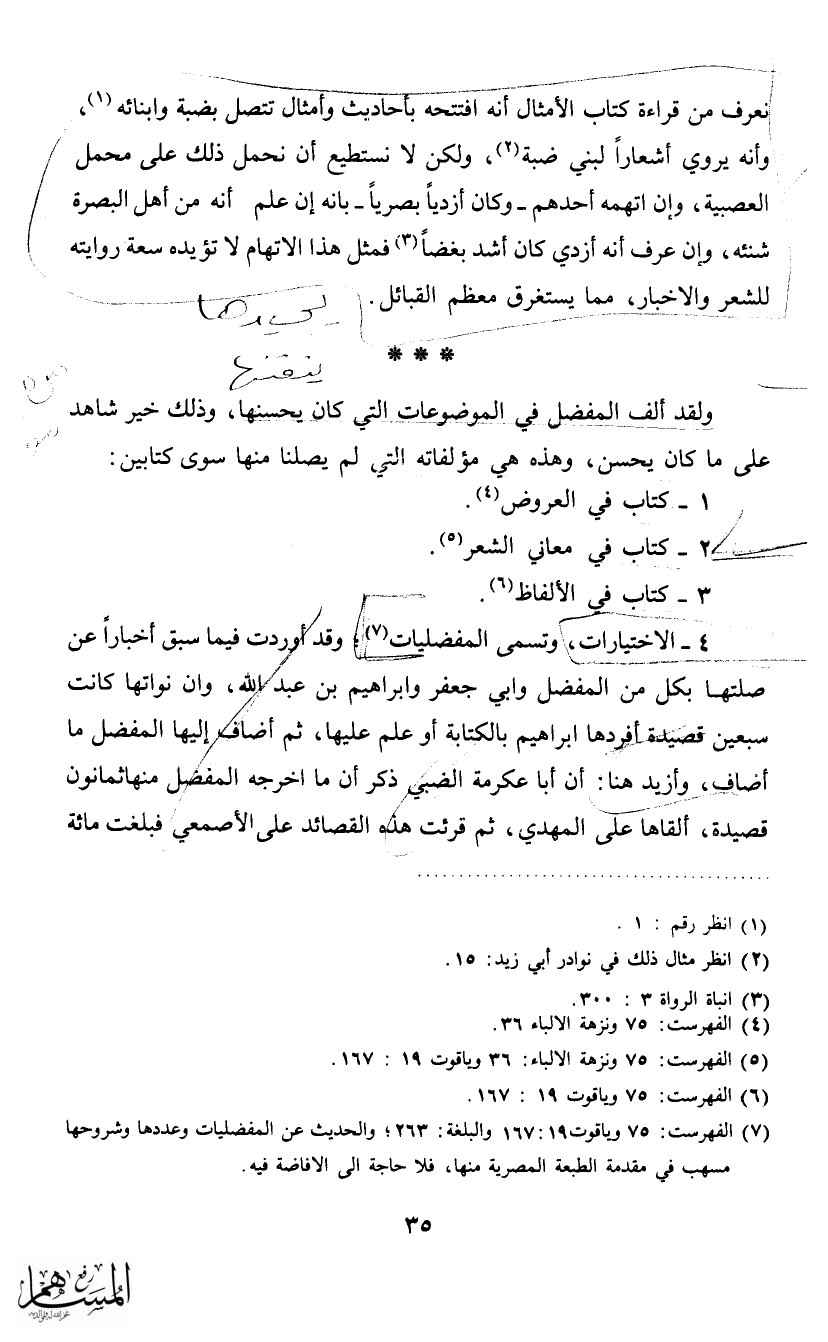 نعرف من قراءة كتاب الأمثال أنه افتتحه بأحاديث وأمثال تتصل بضبة وابنائه (١)،
وأنه يروي أشعاراً لبني ضبة(٢)، ولكن لا نستطيع أن نحمل ذلك على محمل
العصبية، وإن اتهمه أحدهم ـ وكان أزدياً بصرياً ـ بانه إن علم أنه من أهل البصرة
شنئه، وإن عرف أنه أزدي كان أشد بغضاً(٣) فمثل هذا الاتهام لا تؤيده سعة روايته
للشعر والاخبار، مما يستغرق معظم القبائل.
يجيدها
* * *
يتقنها
ولقد ألف المفضل في الموضوعات التي كان يحسنها، وذلك خير شاهد
على ما كان يحسن، وهذه هي مؤلفاته التي لم يصلنا منها سوى كتابين:
١ ـ كتاب في العروض(٤).
٢ ـ كتاب في معاني الشعر(٥).
٣ ـ كتاب في الألفاظ(٦).
٤ ـ الاختيارات، وتسمى المفضليات(٧)؛ وقد أوردت فيما سبق أخباراً عن
صلتها بكل من المفضل وابي جعفر وابراهيم بن عبد الله، وان نواتها كانت
سبعين قصيدة أفردها ابراهيم بالكتابة أو علم عليها، ثم أضاف إليها المفضل ما
أضاف، وأزيد هنا: أن أبا عكرمة الضبي ذكر أن ما اخرجه المفضل منهاثمانون
قصيدة، ألقاها على المهدي، ثم قرئت هذه القصائد على الأصمعي فبلغت مائة
(١) انظر رقم : ١ .
(٢) انظر مثال ذلك في نوادر أبي زيد: ١٥.
(٣) انباة الرواة ٣ : ٣٠٠.
(٤) الفهرست: ٧٥ ونزهة الالباء ٣٦.
(٥) الفهرست: ٧٥ ونزهة الالباء: ٣٦ وياقوت ١٩ : ١٦٧.
(٦) الفهرست: ٧٥ وياقوت ١٩ : ١٦٧.
(٧) الفهرست: ٧٥ وياقوت١٩:١٦٧ والبلغة: ٢٦٣؛ والحديث عن المفضليات وعددها وشروحها
مسهب في مقدمة الطبعة المصرية منها، فلا حاجة الى الافاضة فيه.
٣٥
رفع
المساهم